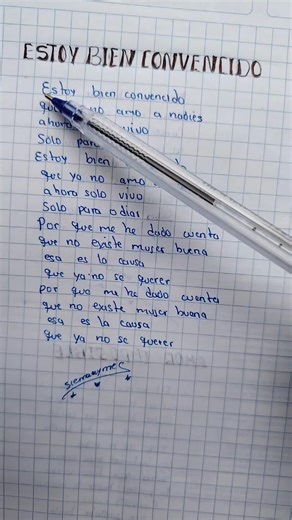 ESTOY BIEN CONVENCIDO
Estoy bien convencido
que no amo a nadies
ahora vivo
Solo para
Estoy bien
que ya no amo
ahora solo vivo
Solo para odiar
Por que me he dado cuenta
que no existe mujer buena
esa es la causa
que ya no se querer
por que me he dado cuenta
que no existe mujer buena
esa es la causa
que ya no se querer